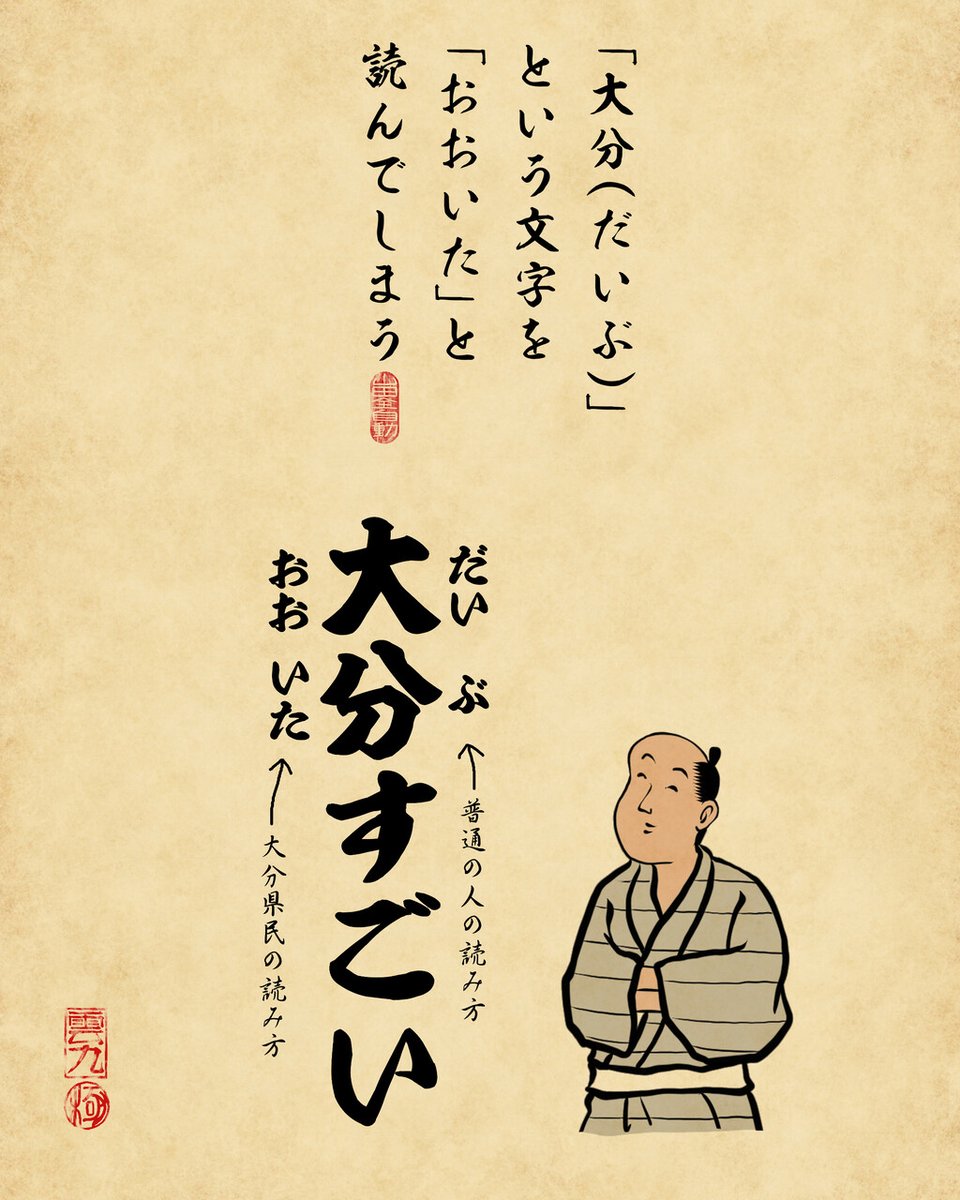 「大分(だいぶ)」
という文字を
「おおいた」と
読んでしまう
だいぶ
大分すごい
おおいた
普通の人の読み方
大分県民の読み方
雲九
極